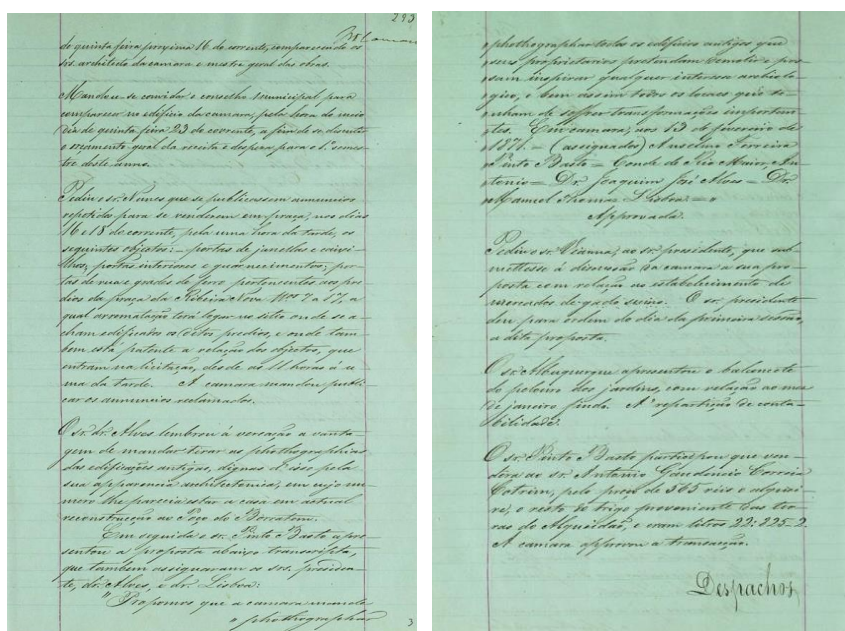 293
de quinta feira proxima 16 do corrente, comparecendo os
srs. architecto da camara e mestre geral das obras.
Mandou-se convidar o conselho municipal para
comparecer no edificio da camara, pela hora do meio
dia de quinta feira 23 do corrente, a fim de se discutir
o orçamento geral da receita e despeza para o 1º semes-
tre deste anno.
Pediu o sr. Nunes que se publicassem annuncios
repetidos para se venderem em praça, nos dias
16 e 18 do corrente, pela uma hora da tarde, os
seguintes objectos: portas de janellas e caixi-
lhos, portas interiores e guarnecimentos, por-
tas de rua e grades de ferro pertencentes aos pre-
dios da praça da Ribeira Nova Nos 7 a 17, a
qual arrematação terá logar no sitio onde se a-
cham edificados os ditos predios, e onde tam-
bem está patente a relação dos objectos, que
entram na licitação, desde as 11 horas á u-
ma da tarde. A camara mandou publi-
car os annuncios reclamados.
O sr. dr. Alves lembrou á vereação a vanta-
gem de mandar tirar as photographias
das edificações antigas, dignas d'isso pela
sua apparencia architectonica, em cujo nu-
mero lhe parecia estar a casa em actual
reconstrucção ao Poço do Borratem.
Em seguida o sr. Pinto Basto apre-
sentou a proposta abaixo transcripta,
que tambem assignaram os srs. presiden-
te, dr. Alves, e dr. Lisboa:
"Propomos que a camara mande
" photographar
3
" photographar todos os edificios antigos que
" seus proprietarios pretendam demolir e pos-
" sam inspirar qualquer interesse archeolo-
" gico, e bem assim todos os locaes que te-
" nham de soffrer transformações importan-
" tes. Em camara, aos 13 de fevereiro de
" 1871. = (assignados) Anselmo Ferreira
" Pinto Basto = Conde de Rio Maior, An-
" tonio = Dr. Joaquim José Alves = Dr.
" Manuel Thomaz Lisboa = "
Approvada.
Pediu o sr. Vianna, ao sr. presidente, que sub-
mettesse á discussão da camara a sua pro-
posta com relação ao estabelecimento de
mercados de gado suino. O sr. presidente
deu para ordem do dia da primeira sessão,
a dita proposta.
O sr. Albuquerque apresentou o balancete
do peloiro dos jardins, com relação ao mez
de janeiro findo. A' repartição de conta-
bilidade.
O sr. Pinto Basto participou que ven-
dera ao sr. Antonio Gaudencio Correia
pelo preço de 565 réis o alquei-
re, o resto do trigo proveniente das ter-
ras do Alqueidão, e eram litros 22:225-2
A camara approvou a transacção.
Despachos